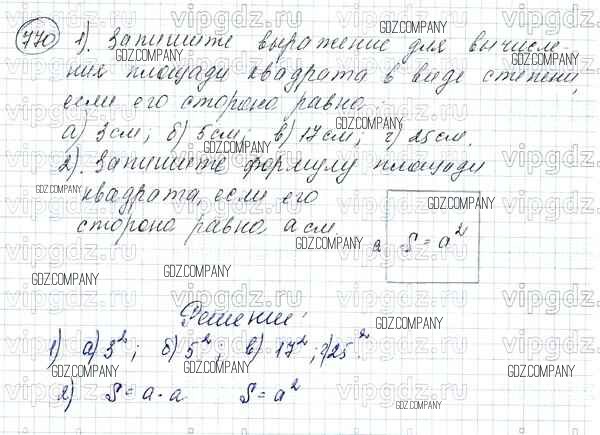 770 1). Запишите выражение для вычисле
ния площади квадрата в виде степени,
если его сторона равна:
а) 3 см; б) 5 см; в) 17 см; г) 25 см.
2). Запишите формулу площади
квадрата, если его
сторона равна а см.
a S = a²
Решение:
1) а) 3²; б) 5²; в) 17²; г) 25².
2) S = a · a S = a²
GDZ.COMPANY
vipgdz.ru